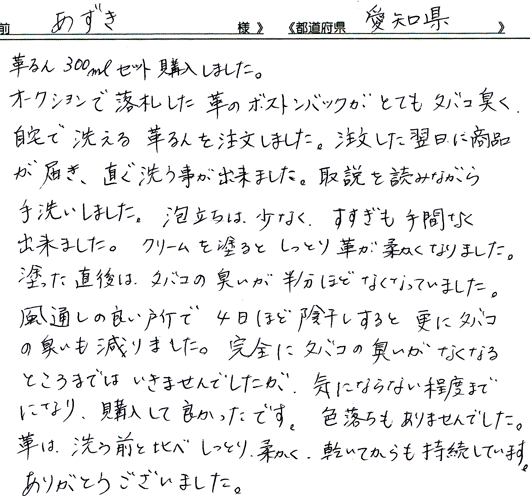 前 あずき 様》 《都道府県 愛知県 》
革るん 300ml セット 購入しました。
オークションで 落札した 革の ボストンバックが とても タバコ臭く、
自宅で 洗える 革るんを注文しました。注文した翌日に商品
が 届き、直ぐ洗う事が出来ました。取説を読みながら
手洗いしました。泡立ちは、少なく、すすぎも 手間なく
出来ました。クリームを塗ると しっとり 革が柔かくなりました。
塗った直後は、タバコの臭いが 半分ほど なくなっていました。
風通しの良い所で 4日ほど 陰干しすると 更に タバコ
の臭いも 減りました。完全に タバコの臭いが なくなる
ところまでは いきませんでしたが、気にならない程度まで
になり、購入して良かったです。色落ちもありませんでした。
革は、洗う前と比べ しっとり、柔かく、乾いてからも 持続しています。
ありがとうございました。